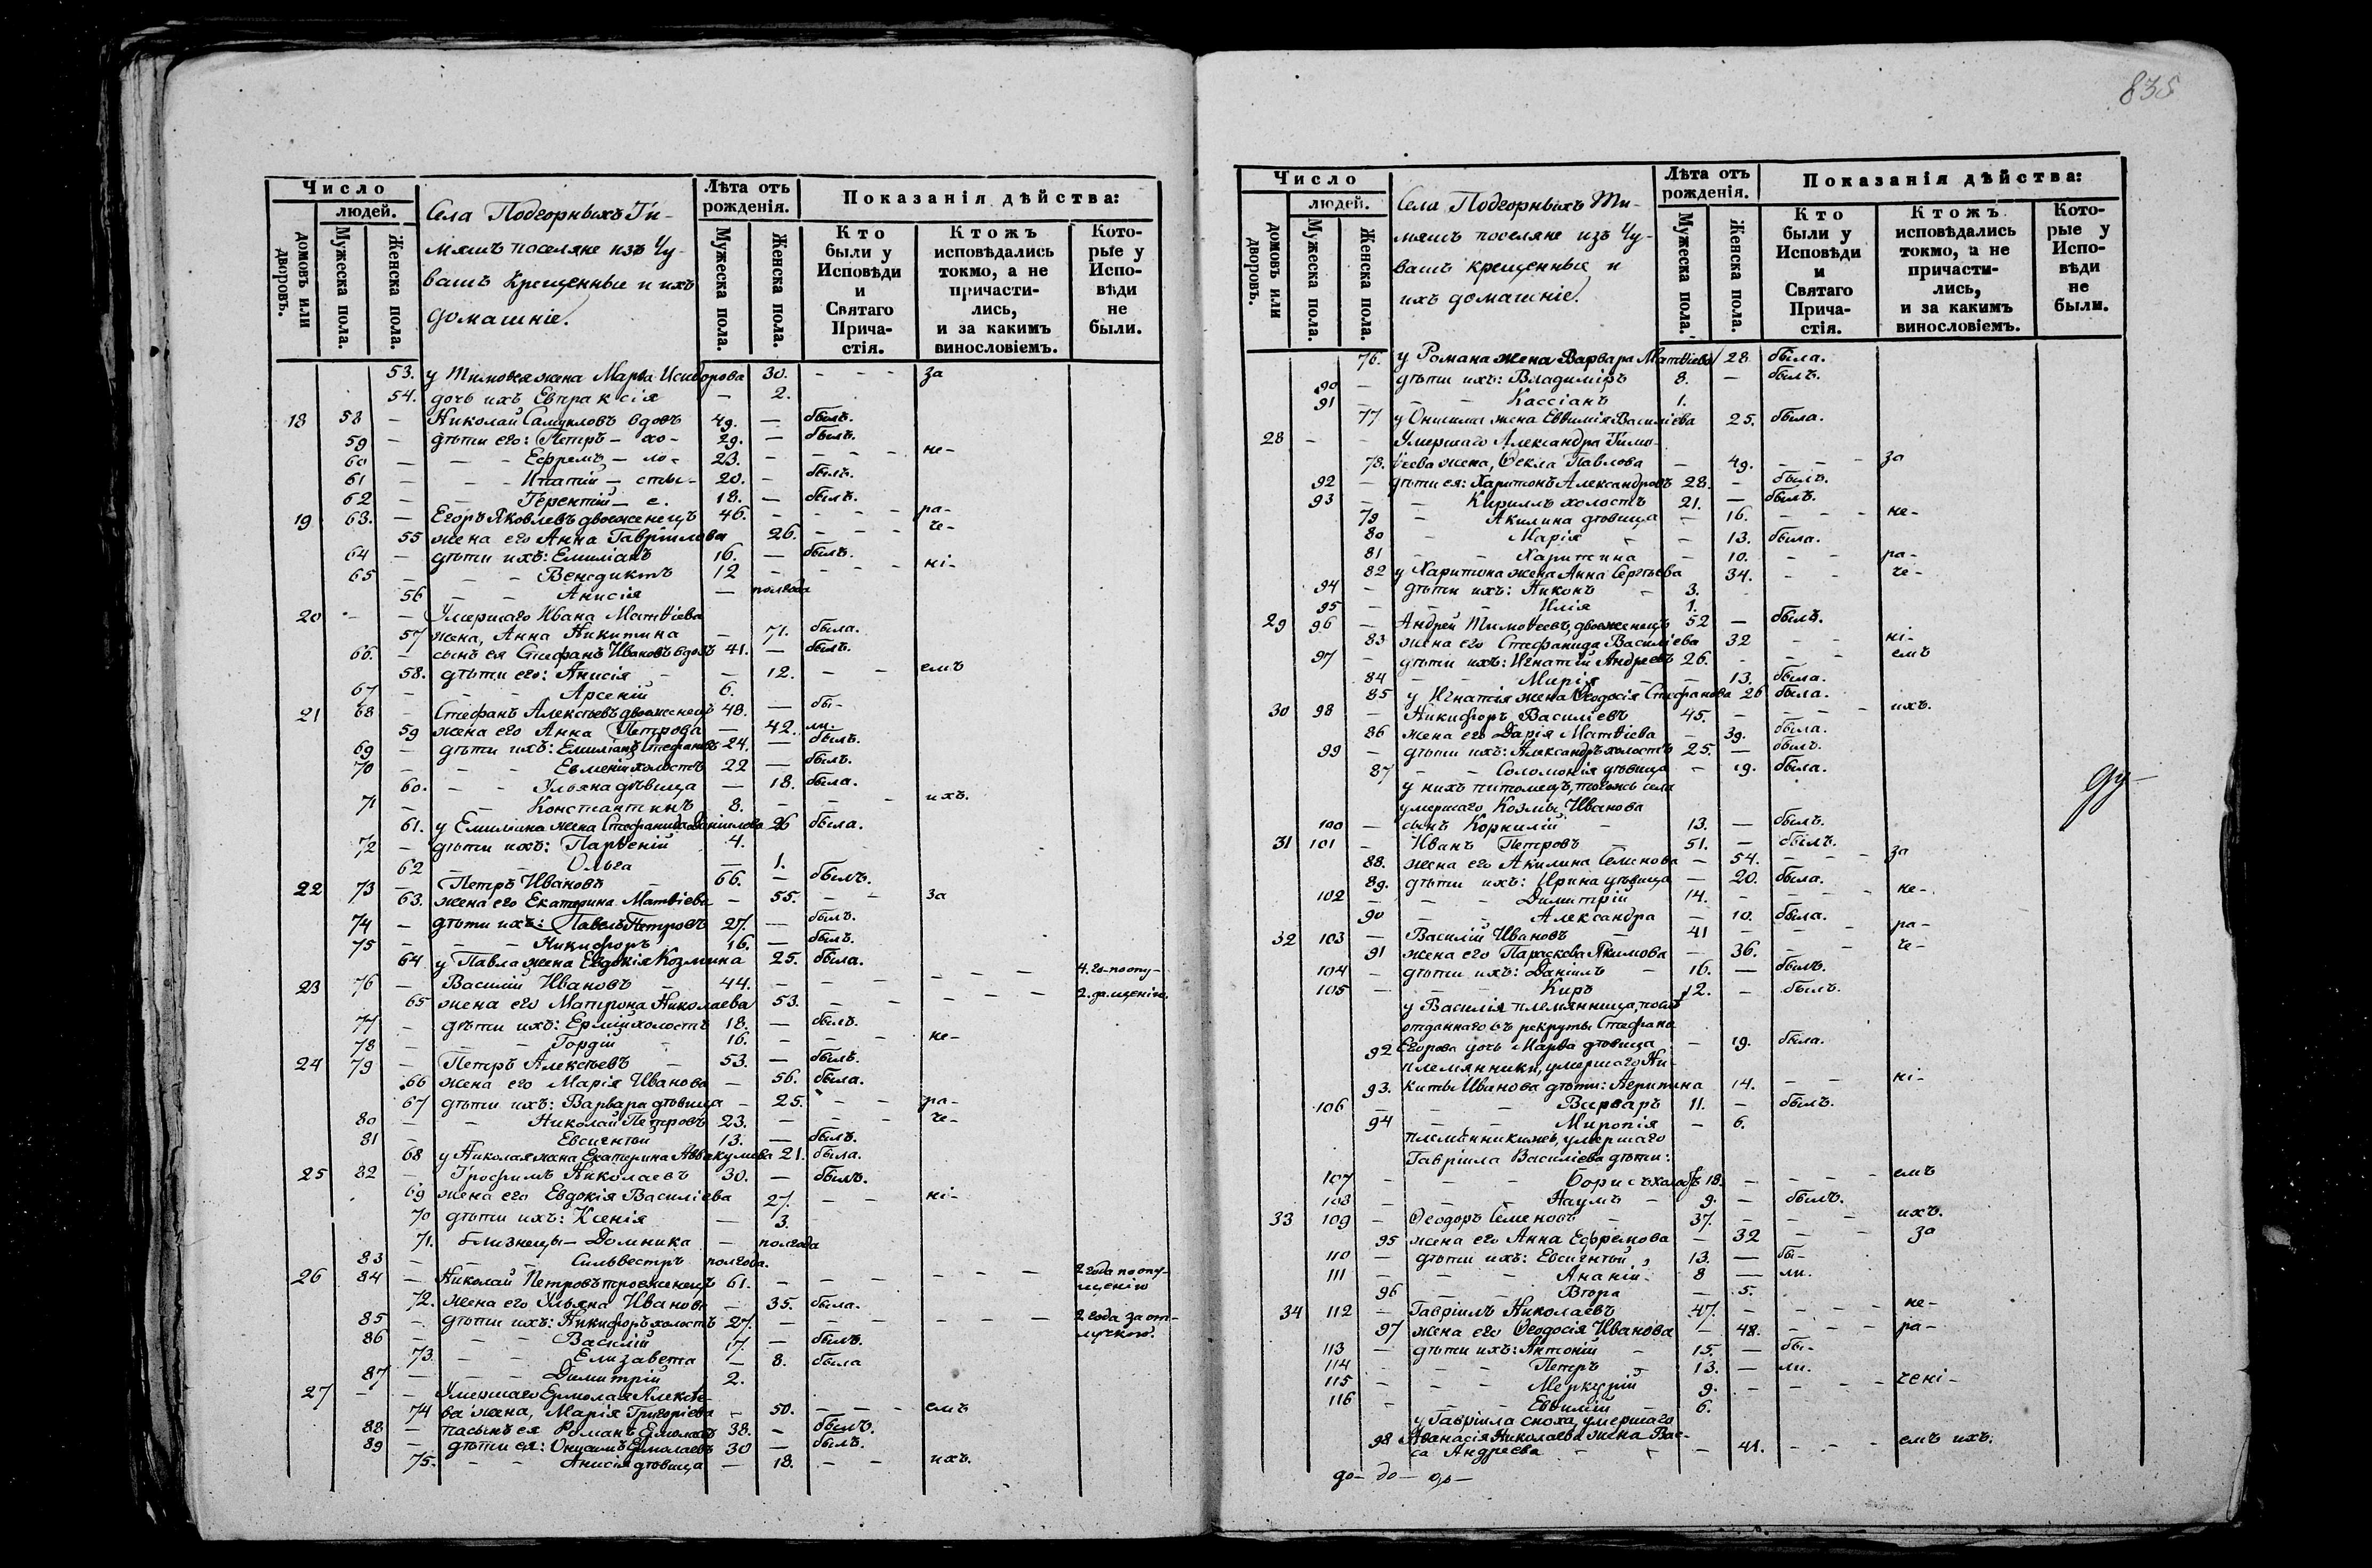 835
Число
людей.
домовъ или дворовъ.
Мужеска пола.
Женска пола.
Села Подгорныхъ Ти-
мяшъ поселяне изъ Чу-
вашъ крещенные и ихъ
домашніе.
Лѣта отъ рожденія.
Мужеска пола.
Женска пола.
Показанія дѣйства:
Кто были у Исповѣди и Святаго Прича-стія.
Ктожъ исповѣдались токмо, а не причасти-лись, и за какимъ винословіемъ.
Кото-рые у Испо-вѣди не были.
53. у Тимофея жена Марѳа Исидорова 30. - - - за
54. дочь ихъ Евпраксія — 2.
18 58 — Николай Самуиловъ вдовъ 49. — былъ.
59 — дѣти его: Петръ — хо- 29. — былъ.
60 — — - Ефремъ — ло- 23. - - - - не-
61 — — - Игнатій — сты- 20. - былъ.
62 — — Терентій — е. 18. — былъ.
19 63. — Егоръ Яковлевъ двоеженецъ 46. - - - - ра-
55 жена его Анна Гавріилова 26. - - - че-
64 — дѣти ихъ: Емиліанъ 16. — былъ.
65 — — - Венедиктъ 12 - - - - ні-
56 — — Анисія — полгода
20 - — Умершаго Ивана Матвѣева
57 жена, Анна Никитина — 71. была.
66. — сынъ ея Стефанъ Ивановъ вдовъ 41. — былъ.
58. дѣти его: Анисія - — 12. - - емъ
67 — - - Арсеній 6.
21 68 - Стефанъ Алексѣевъ двоеженецъ 48. — бы-
59 жена его Анна Петрова — 42. ли.
69 — дѣти ихъ: Емиліанъ Стефановъ 24. — былъ.
70 — — - Евменій холостъ 22 — былъ.
60. — - Ульяна дѣвица — 18. была.
71 — — Константинъ 8. - - - ихъ.
61. у Емиліана жена Стефанида Даніилова 26 была.
72 — дѣти ихъ: Парѳеній 4.
62 — - Ольга — 1.
22 73 — Петръ Ивановъ - 66. — былъ.
63. жена его Екатерина Матвѣева - 55. - - за
74 — дѣти ихъ: Павелъ Петровъ 27. — былъ.
75 — — - Никифоръ 16. — былъ.
64 у Павла жена Евдокія Козмина 25. была.
23 76 — Василій Ивановъ - 44. - - - - - 4. го. по опу-
65 жена его Матрона Николаева 53. - - - - - 2. да. щенію.
77 - дѣти ихъ: Ермій холостъ 18. — былъ.
78 — - - Гордій - 16. - - - не-
24 79 — Петръ Алексѣевъ - 53. — былъ.
66 жена его Марія Иванова - 56. была.
67 дѣти ихъ: Варвара дѣвица - 25. - - ра-
80 — - Николай Петровъ 23. - - - че-
81 — - Евсигній 13. — былъ.
68 у Николая жена Екатерина Аввакумова 21. была.
25 82 — Трофимъ Николаевъ 30. — былъ.
69 жена его Евдокія Василіева 27. - - ні-
70 дѣти ихъ: Ксенія — 3.
71. близнецы — Домника — полгода
83 — - - Сильвестръ полгода.
26 84 — Николай Петровъ троеженецъ 61. - - - - - - 2 года по опу-
щенію
72. жена его Ульяна Иванова — 35. была.
85 — дѣти ихъ: Никифоръ холостъ 27. - - - - - - 2 года за от-
лучкою.
86 — - - Василій 17. — былъ.
73. - - Елизавета — 8. была
87 — - - Димитрій 2.
27 - — Умершаго Ермолая Алексѣе-
74 ва жена, Марія Григоріева - 50. - - - емъ
88 — пасынъ ея Романъ Ермолаевъ 38. - былъ.
89 — дѣти ея: Онисимъ Ермолаевъ 30 — былъ.
75. - - Анисія дѣвица — 18. - - ихъ.
Число
людей.
домовъ или дворовъ.
Мужеска пола.
Женска пола.
Села Подгорныхъ Ти-
мяшъ поселяне изъ Чу-
вашъ крещенные и
ихъ домашніе.
Лѣта отъ рожденія.
Мужеска пола.
Женска пола.
Показанія дѣйства:
Кто были у Исповѣди и Святаго Прича-стія.
Ктожъ исповѣдались токмо, а не причасти-лись, и за какимъ винословіемъ.
Кото-рые у Испо-вѣди не были.
76. у Романа жена Варвара Матвѣева 28. была.
90 — дѣти ихъ: Владиміръ 8. — былъ.
91 — - - Кассіанъ 1.
77 у Онисима жена Евѳимія Василіева 25. была.
28 - - Умершаго Александра Тимо-
78. ѳеева жена, Ѳекла Павлова — 49. - - - за
92 — дѣти ея: Харитонъ Александровъ 28. - былъ.
93 - — Кириллъ холостъ 21. — былъ.
79 - Акилина дѣвица — 16. - - - не-
80 - Марія - - 13. была.
81 - - Харитина - 10. - - ра-
82 у Харитона жена Анна Сергѣева 34. - - че-
94 - дѣти ихъ: Никонъ - 3.
95 — - - Илія 1.
29 96 — Андрей Тимоѳеевъ, двоеженецъ 52 — былъ.
83 жена его Стефанида Василіева 32 - - ні-
97 - дѣти ихъ: Игнатій Андреевъ 26. - - - емъ
84 — - Марія - — 13. была.
85 у Игнатія жена Ѳеодосія Стефанова 26 была.
30 98 — Никифоръ Василіевъ 45. - - - - ихъ.
86 жена его Дарія Матвѣева - 39. была.
99 — дѣти ихъ: Александръ холостъ 25. — былъ.
87 - - Соломонія дѣвица - 19. была.
у нихъ питомецъ, тогожъ села
умершаго Козмы Иванова
100 — сынъ Корнилій - 13. — былъ.
ду-
31 101 - Иванъ Петровъ - 51. - былъ.
88. жена его Акилина Семенова - 54. - - - за
89. дѣти ихъ: Ирина дѣвица — 20. была.
102 — - - Димитрій 14. - - - - не-
90 — - Александра — 10. была.
32 103 — Василій Ивановъ - 41 - - - ра-
91 жена его Параскева Якимова — 36. - - че-
104 - дѣти ихъ: Даніилъ - 16. — былъ.
105 — - - Киръ 12. - былъ.
у Василія племянница,
отданнаго въ рекруты Стефана
92 Егорова дочь Марѳа дѣвица - 19. была.
племянники, умершаго Ни-
93. киты Иванова дѣти: Агрипина 14. - - ні-
106 - - - Варваръ 11. - былъ.
94 - - Миропія - 6.
племянникижъ, умершаго
Гавріила Василіева дѣти:
107 - - - Борисъ холостъ 18. - - - - емъ
108 — - - Наумъ - 9. — былъ.
33 109 - Ѳеодоръ Семеновъ - 37. - - - ихъ.
95 жена его Анна Ефремова — 32 - - за
110 — дѣти ихъ: Евсигній 13. — бы-
111 — - - Ананій 8 — ли.
96 — - Втора — 5.
34 112 — Гавріилъ Николаевъ 47. - - - - не-
97 жена его Ѳеодосія Иванова — 48. - - - ра-
113 — дѣти ихъ: Антоній - 15. — бы-
114 — - - Петръ - 13. — ли.
115 — - - Меркурій 9. - - - - чені-
116 - - - Евѳимій - 6.
у Гавріила сноха, умершаго
98 Аѳанасія Николаева жена Вас-
са Андреева - - - 41. - - - емъ ихъ.
до- до- до-